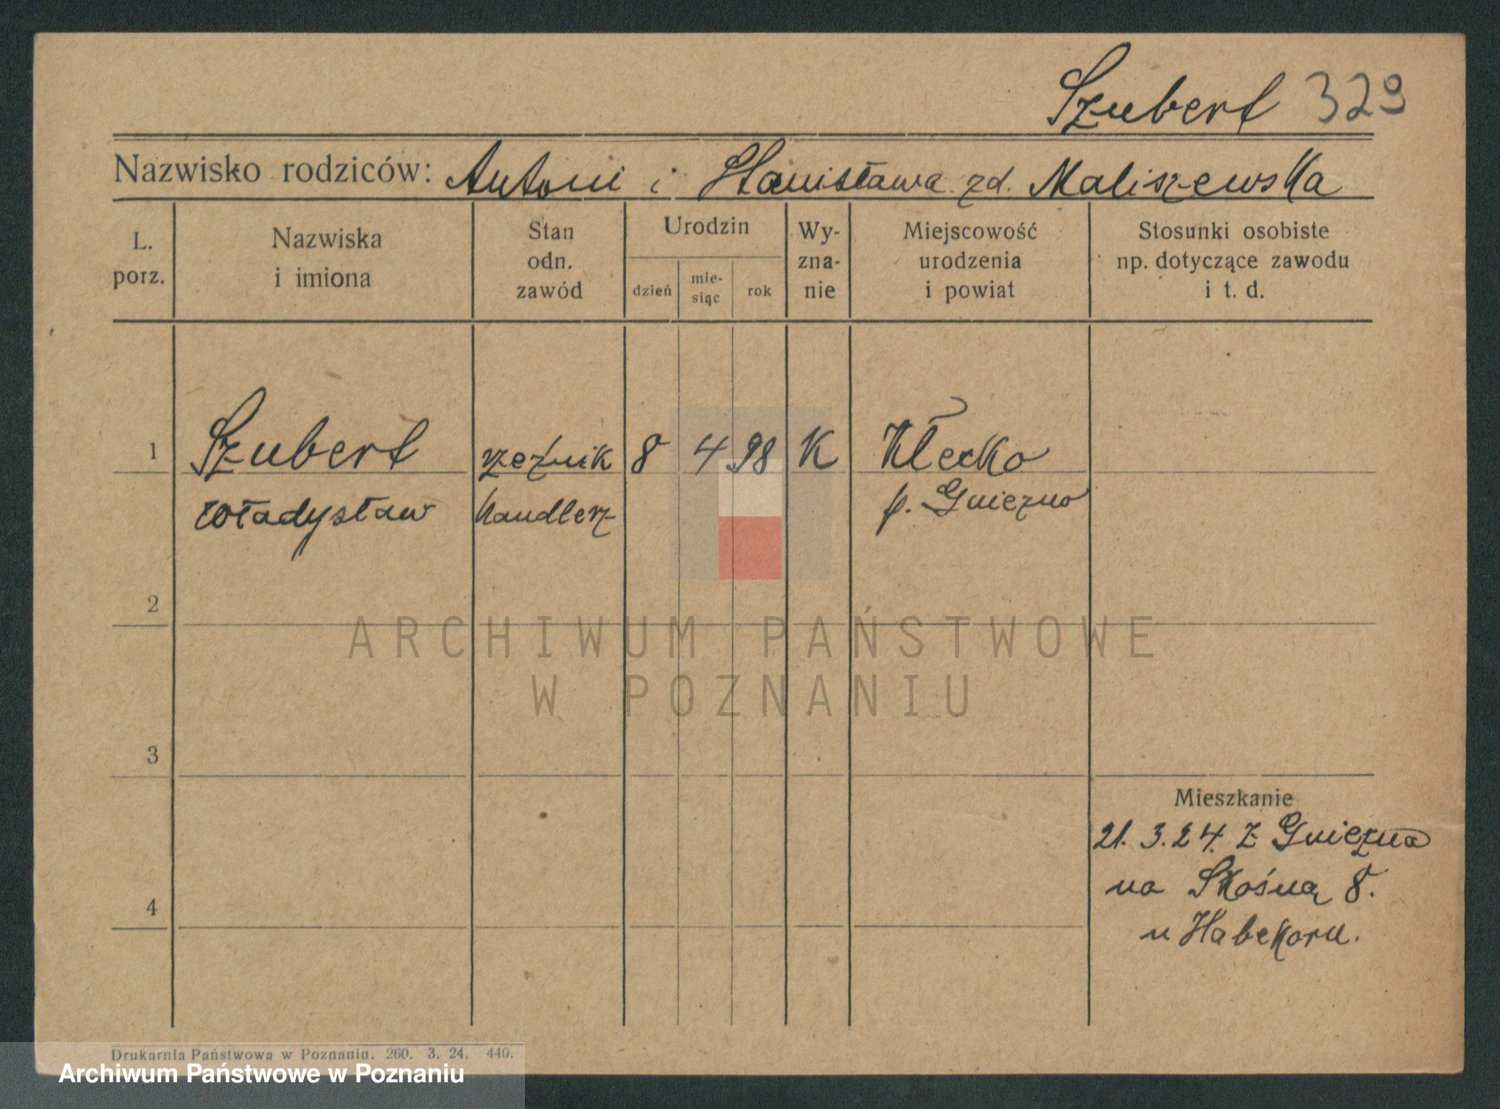 Szubert 329
Nazwisko rodziców: Antoni i Stanisława zd. Maliszewska
L. porz.
Nazwiska i imiona
Stan odn. zawód
Urodzin
dzień
mie-
siąc
rok
Wy-
zna-
nie
Miejscowość
urodzenia
i powiat
Stosunki osobiste
np. dotyczące zawodu
i t. d.
1 Szubert rzeźnik 8 4 98 K Kłecko
Władysław handlerz p. Gniezno
2
3
4
Mieszkanie
21. 3. 24. z Gniezna
na Skośną 8.
u Habekoru.
Drukarnia Państwowa w Poznaniu. 260. 3. 24. 440.
ARCHIWUM PAŃSTWOWE
W POZNANIU
Archiwum Państwowe w Poznaniu